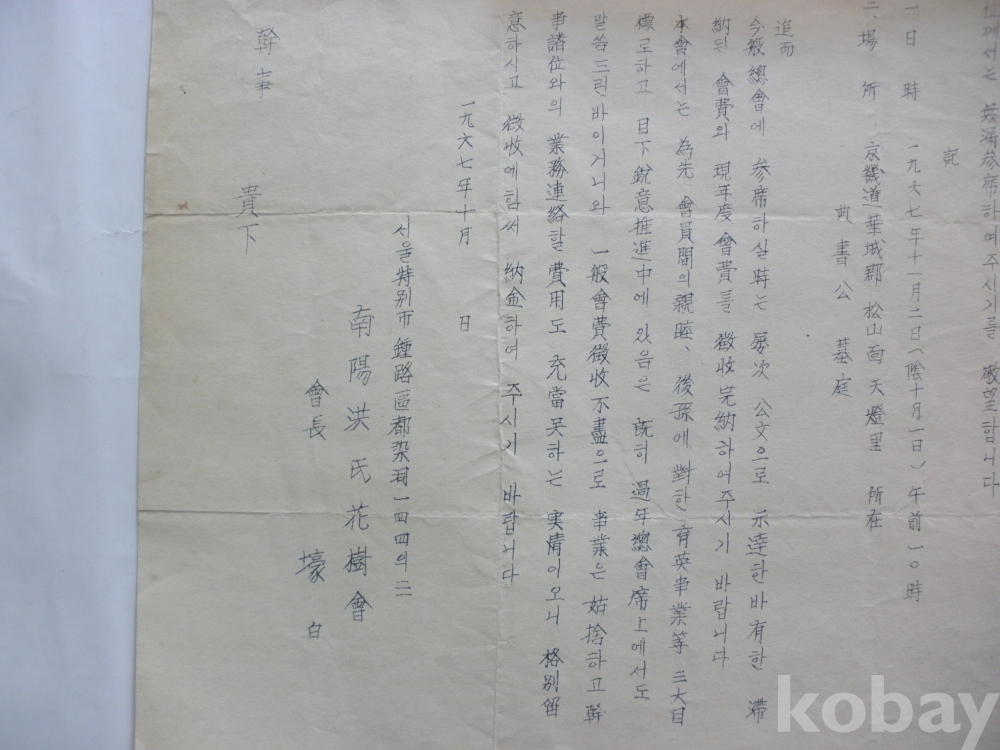 하여주시기를 敬望합니다
記
一、日 時 一九六七年十一月二日(陰十月一日) 午前 一〇時
二、場 所 京畿道 華城郡 松山面 天燈里 所在
典書公 墓庭
追而
今般 總會에 參席하실 時는 屢次 公文으로 示達한바 有한 滯
納된 會費와 現年度 會費를 徵收 完納하여주시기 바랍니다
本會에서는 為先 會員間의 親睦、後孫에 對한 育英事業等 三大目
標로하고 目下 銳意推進中에 있음은 旣히 過年 總會席上에서도
말씀드린 바이거니와 一般會費徵收不盡으로 事業은 姑捨하고 幹
事諸位와의 業務連絡할 費用도 充當못하는 実情이오니 格別留
意하시고 徵收에 힘써 納金하여 주시기 바랍니다
一九六七年十月 日
서울特別市 鍾路區 都染洞 一四四의 二
南陽洪氏花樹會
會長 壕 白
幹事 貴下
kobay